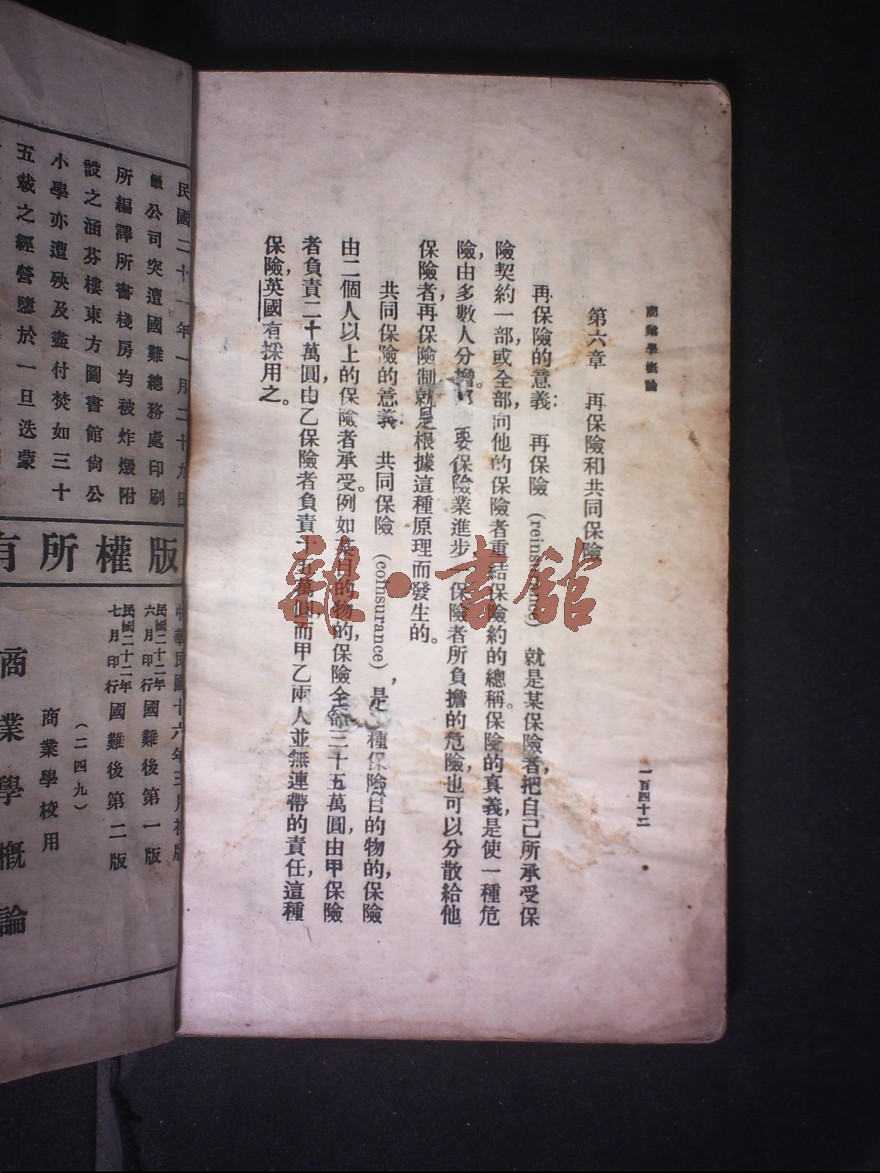 商業學概論
一百四十二
第六章　再保險和共同保險
再保險的意義：　再保險　(reinsurance)　就是某保險者，把自己所承受保
險契約一部，或全部，向他的保險者重結保險約的總稱。保險的真義，是使一種危
險，由多數人分擔。要保險業進步，保險者所負擔的危險，也可以分散給他
保險者，再保險制就是根據這種原理而發生的。
共同保險的意義：　共同保險　(coinsurance)，是種保險目的物的保險，
由二個人以上的保險者承受。例如某目的物的保險金三十五萬圓，由甲保險
者負責二十萬圓，由乙保險者負責十五萬圓，而甲乙兩人並無連帶的責任，這種
保險，英國有採用之。
民國二十一年一月二十九日
敝公司突遭國難總務處印刷
所編譯所書棧房均被炸燬附
設之涵芬樓東方圖書館尚公
小學亦遭殃及盡付焚如三十
五載之經營隳於一旦迭蒙
版權所有
中華民國十六年三月初版
民國二十二年六月印行　國難後第一版
民國二十二年七月印行　國難後第二版
(二四九)
商業學校用
商業學概論
龍·書館